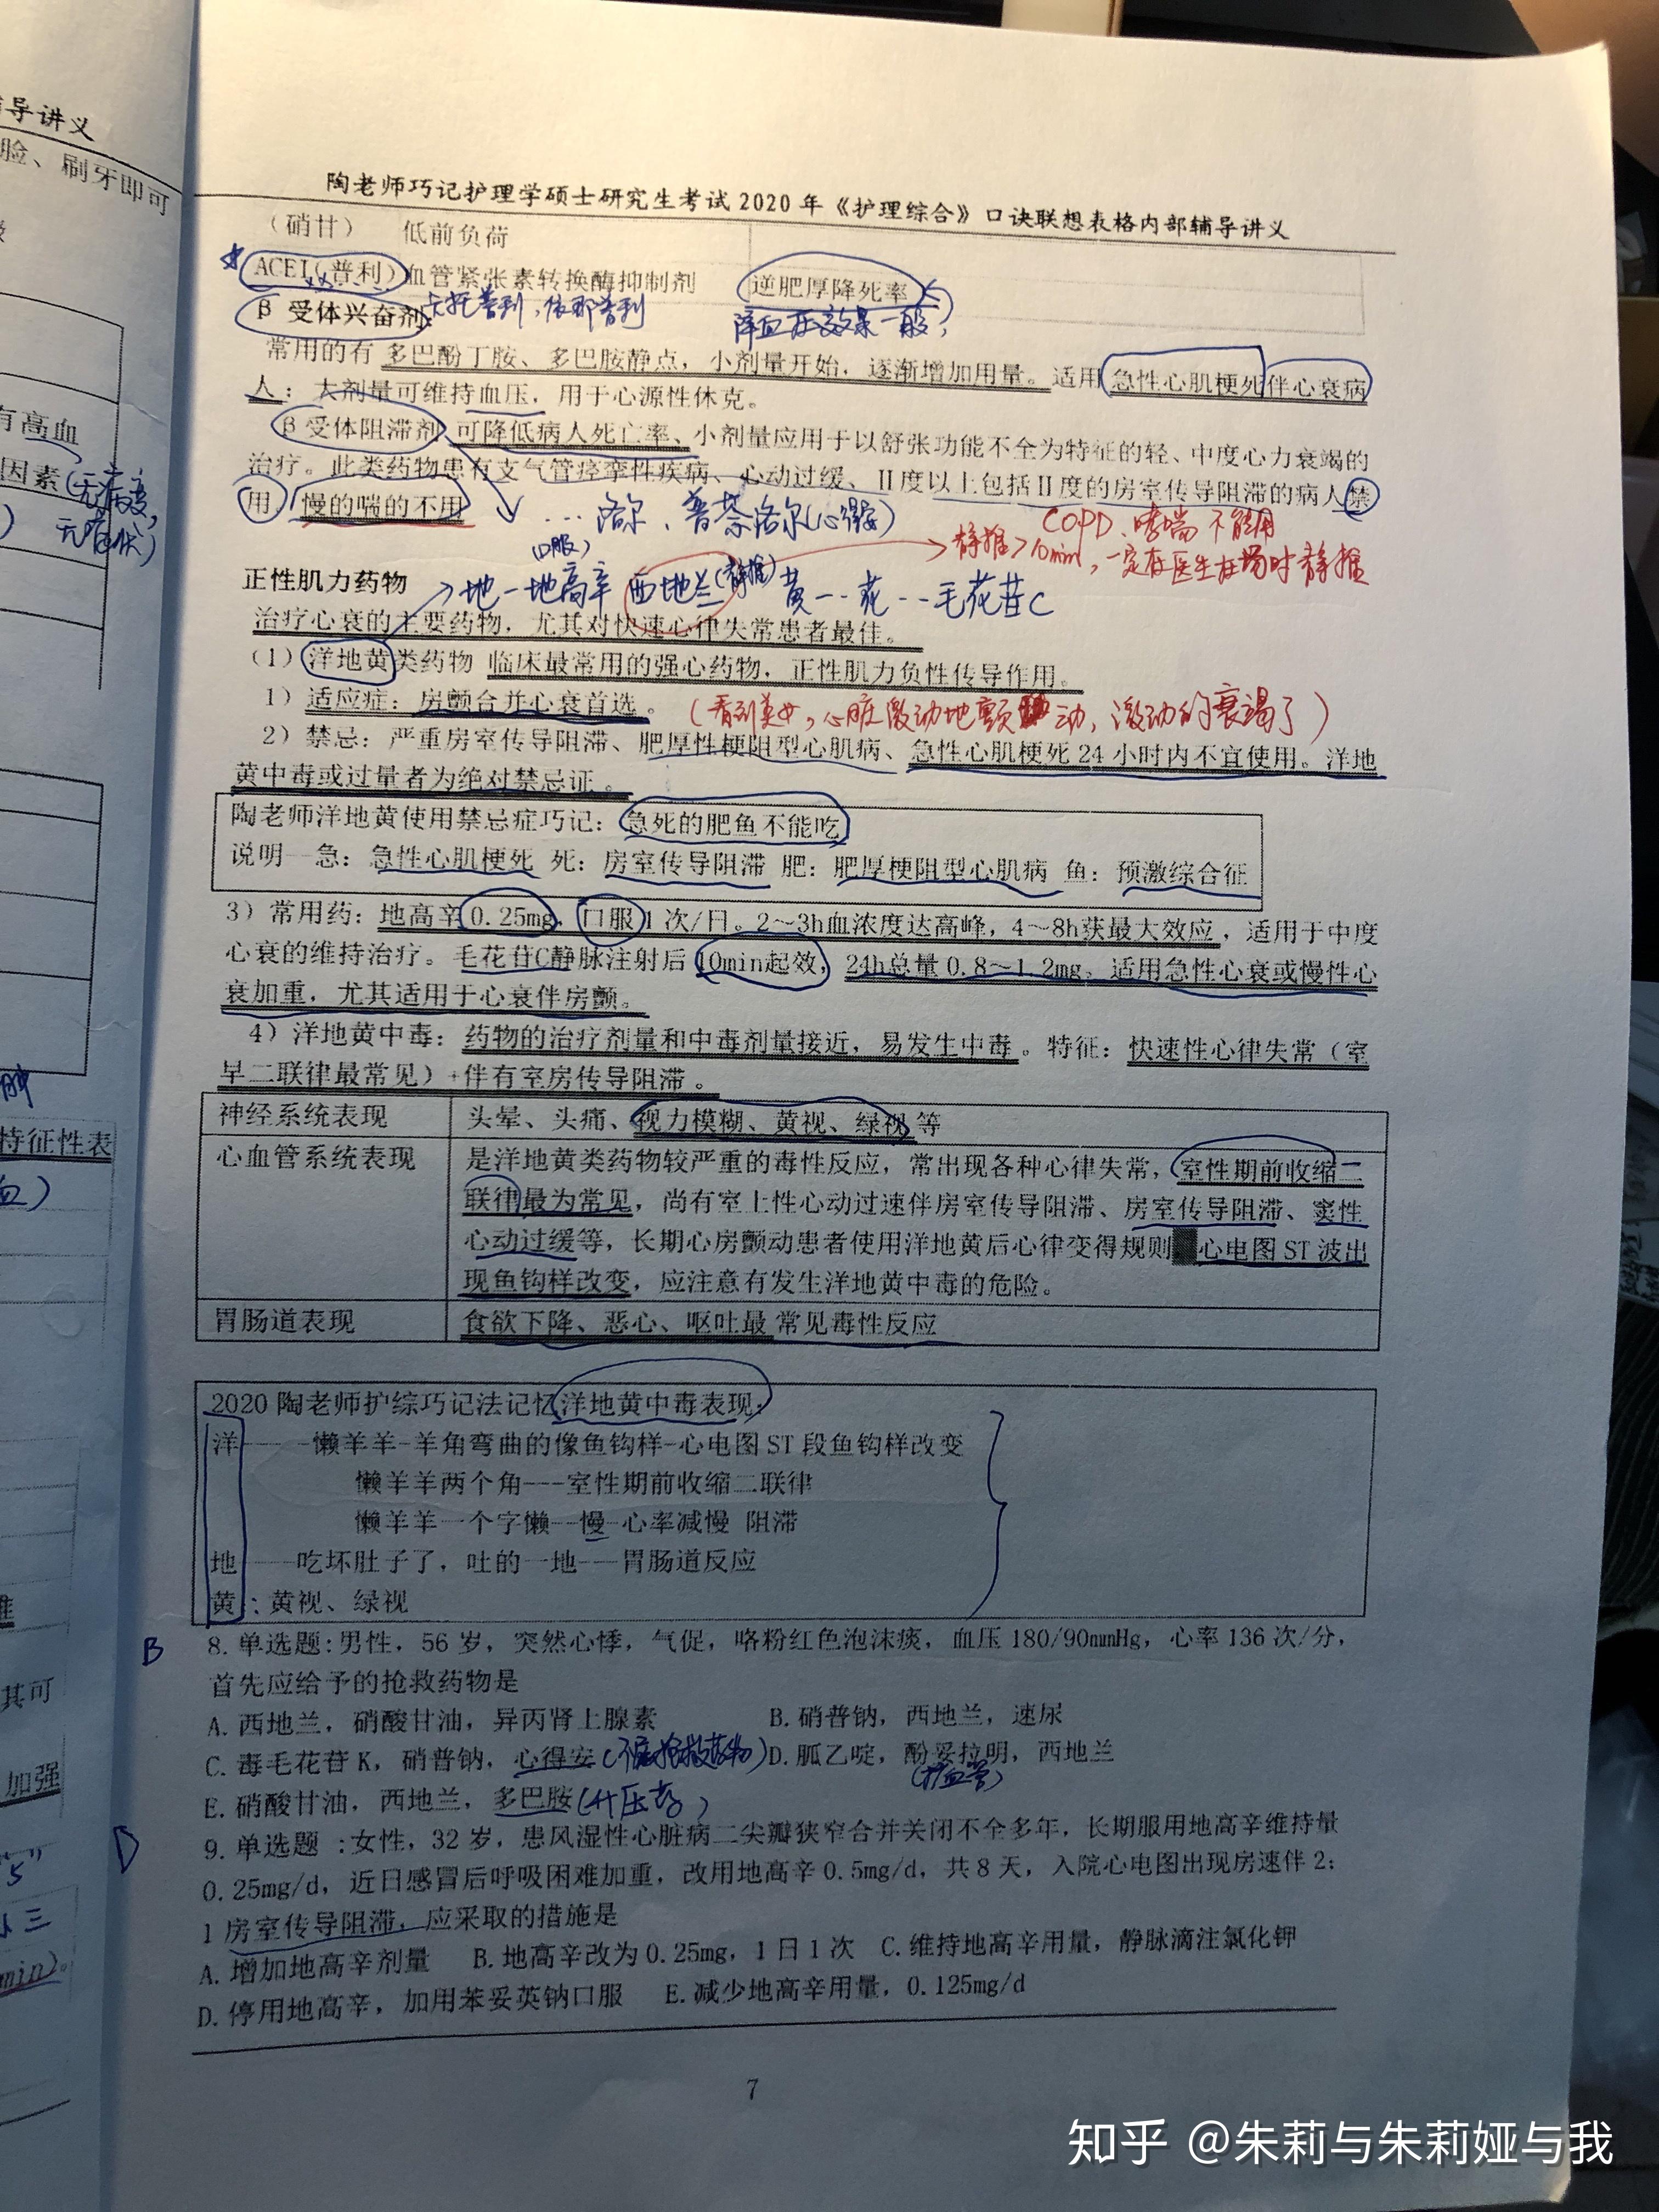 导讲义
脸、刷牙即可
有高血
因素(无病变,
无症状)
肿
特征性表
血)
其可
加强
"5"
小三
min)。
陶老师巧记护理学硕士研究生考试2020年《护理综合》口诀联想表格内部辅导讲义
(硝甘) 低前负荷
ACEI(普利)血管紧张素转换酶抑制剂 逆肥厚降死率
β 受体兴奋剂: 卡托普利,依那普利 降血压效果一般
常用的有 多巴酚丁胺、多巴胺静点,小剂量开始,逐渐增加用量。适用 急性心肌梗死伴心衰病
人: 大剂量可维持血压,用于心源性休克。
β受体阻滞剂 可降低病人死亡率、小剂量应用于以舒张功能不全为特征的轻、中度心力衰竭的
治疗。此类药物患有支气管痉挛性疾病、心动过缓、Ⅱ度以上包括Ⅱ度的房室传导阻滞的病人禁
用。慢的喘的不用 ... 洛尔、普萘洛尔(心得安) COPD、哮喘不能用
(口服) 静推>10min,一定在医生在场时静推
正性肌力药物 地一地高辛 西地兰(静推) 黄--花--毛花苷C
治疗心衰的主要药物,尤其对快速心律失常患者最佳。
(1)洋地黄类药物 临床最常用的强心药物,正性肌力负性传导作用。
1)适应症:房颤合并心衰首选。 (看到美女,心脏激动地颤动,激动的衰竭了)
2)禁忌:严重房室传导阻滞、肥厚性梗阻型心肌病、急性心肌梗死24小时内不宜使用。洋地
黄中毒或过量者为绝对禁忌证。
陶老师洋地黄使用禁忌症巧记:急死的肥鱼不能吃
说明--急:急性心肌梗死 死:房室传导阻滞 肥:肥厚梗阻型心肌病 鱼:预激综合征
3)常用药:地高辛0.25mg,口服1次/日。2~3h血浓度达高峰,4~8h获最大效应,适用于中度
心衰的维持治疗。毛花苷C静脉注射后10min起效,24h总量0.8~1.2mg。适用急性心衰或慢性心
衰加重,尤其适用于心衰伴房颤。
4)洋地黄中毒:药物的治疗剂量和中毒剂量接近,易发生中毒。特征:快速性心律失常(室
早二联律最常见)+伴有室房传导阻滞。
神经系统表现 头晕、头痛、视力模糊、黄视、绿视等
心血管系统表现 是洋地黄类药物较严重的毒性反应,常出现各种心律失常,室性期前收缩二
联律最为常见,尚有室上性心动过速伴房室传导阻滞、房室传导阻滞、窦性
心动过缓等,长期心房颤动患者使用洋地黄后心律变得规则 心电图ST波出
现鱼钩样改变,应注意有发生洋地黄中毒的危险。
胃肠道表现 食欲下降、恶心、呕吐最常见毒性反应
2020陶老师护综巧记法记忆洋地黄中毒表现:
洋----懒羊羊-羊角弯曲的像鱼钩样-心电图ST段鱼钩样改变
懒羊羊两个角---室性期前收缩二联律
懒羊羊一个字懒--慢-心率减慢 阻滞
地----吃坏肚子了,吐的一地---胃肠道反应
黄:黄视、绿视
B 8.单选题:男性,56岁,突然心悸,气促,咯粉红色泡沫痰,血压180/90mmHg,心率136次/分,
首先应给予的抢救药物是
A.西地兰,硝酸甘油,异丙肾上腺素 B.硝普钠,西地兰,速尿
C.毒毛花苷K,硝普钠,心得安(不属抢救药物) D.胍乙啶,酚妥拉明,西地兰
(扩血管)
E.硝酸甘油,西地兰,多巴胺(升压药)
D 9.单选题 :女性,32岁,患风湿性心脏病二尖瓣狭窄合并关闭不全多年,长期服用地高辛维持量
0.25mg/d,近日感冒后呼吸困难加重,改用地高辛0.5mg/d,共8天,入院心电图出现房速伴2:
1房室传导阻滞,应采取的措施是
A.增加地高辛剂量 B.地高辛改为0.25mg,1日1次 C.维持地高辛用量,静脉滴注氯化钾
D.停用地高辛,加用苯妥英钠口服 E.减少地高辛用量,0.125mg/d
7
知乎 @朱莉与朱莉娅与我